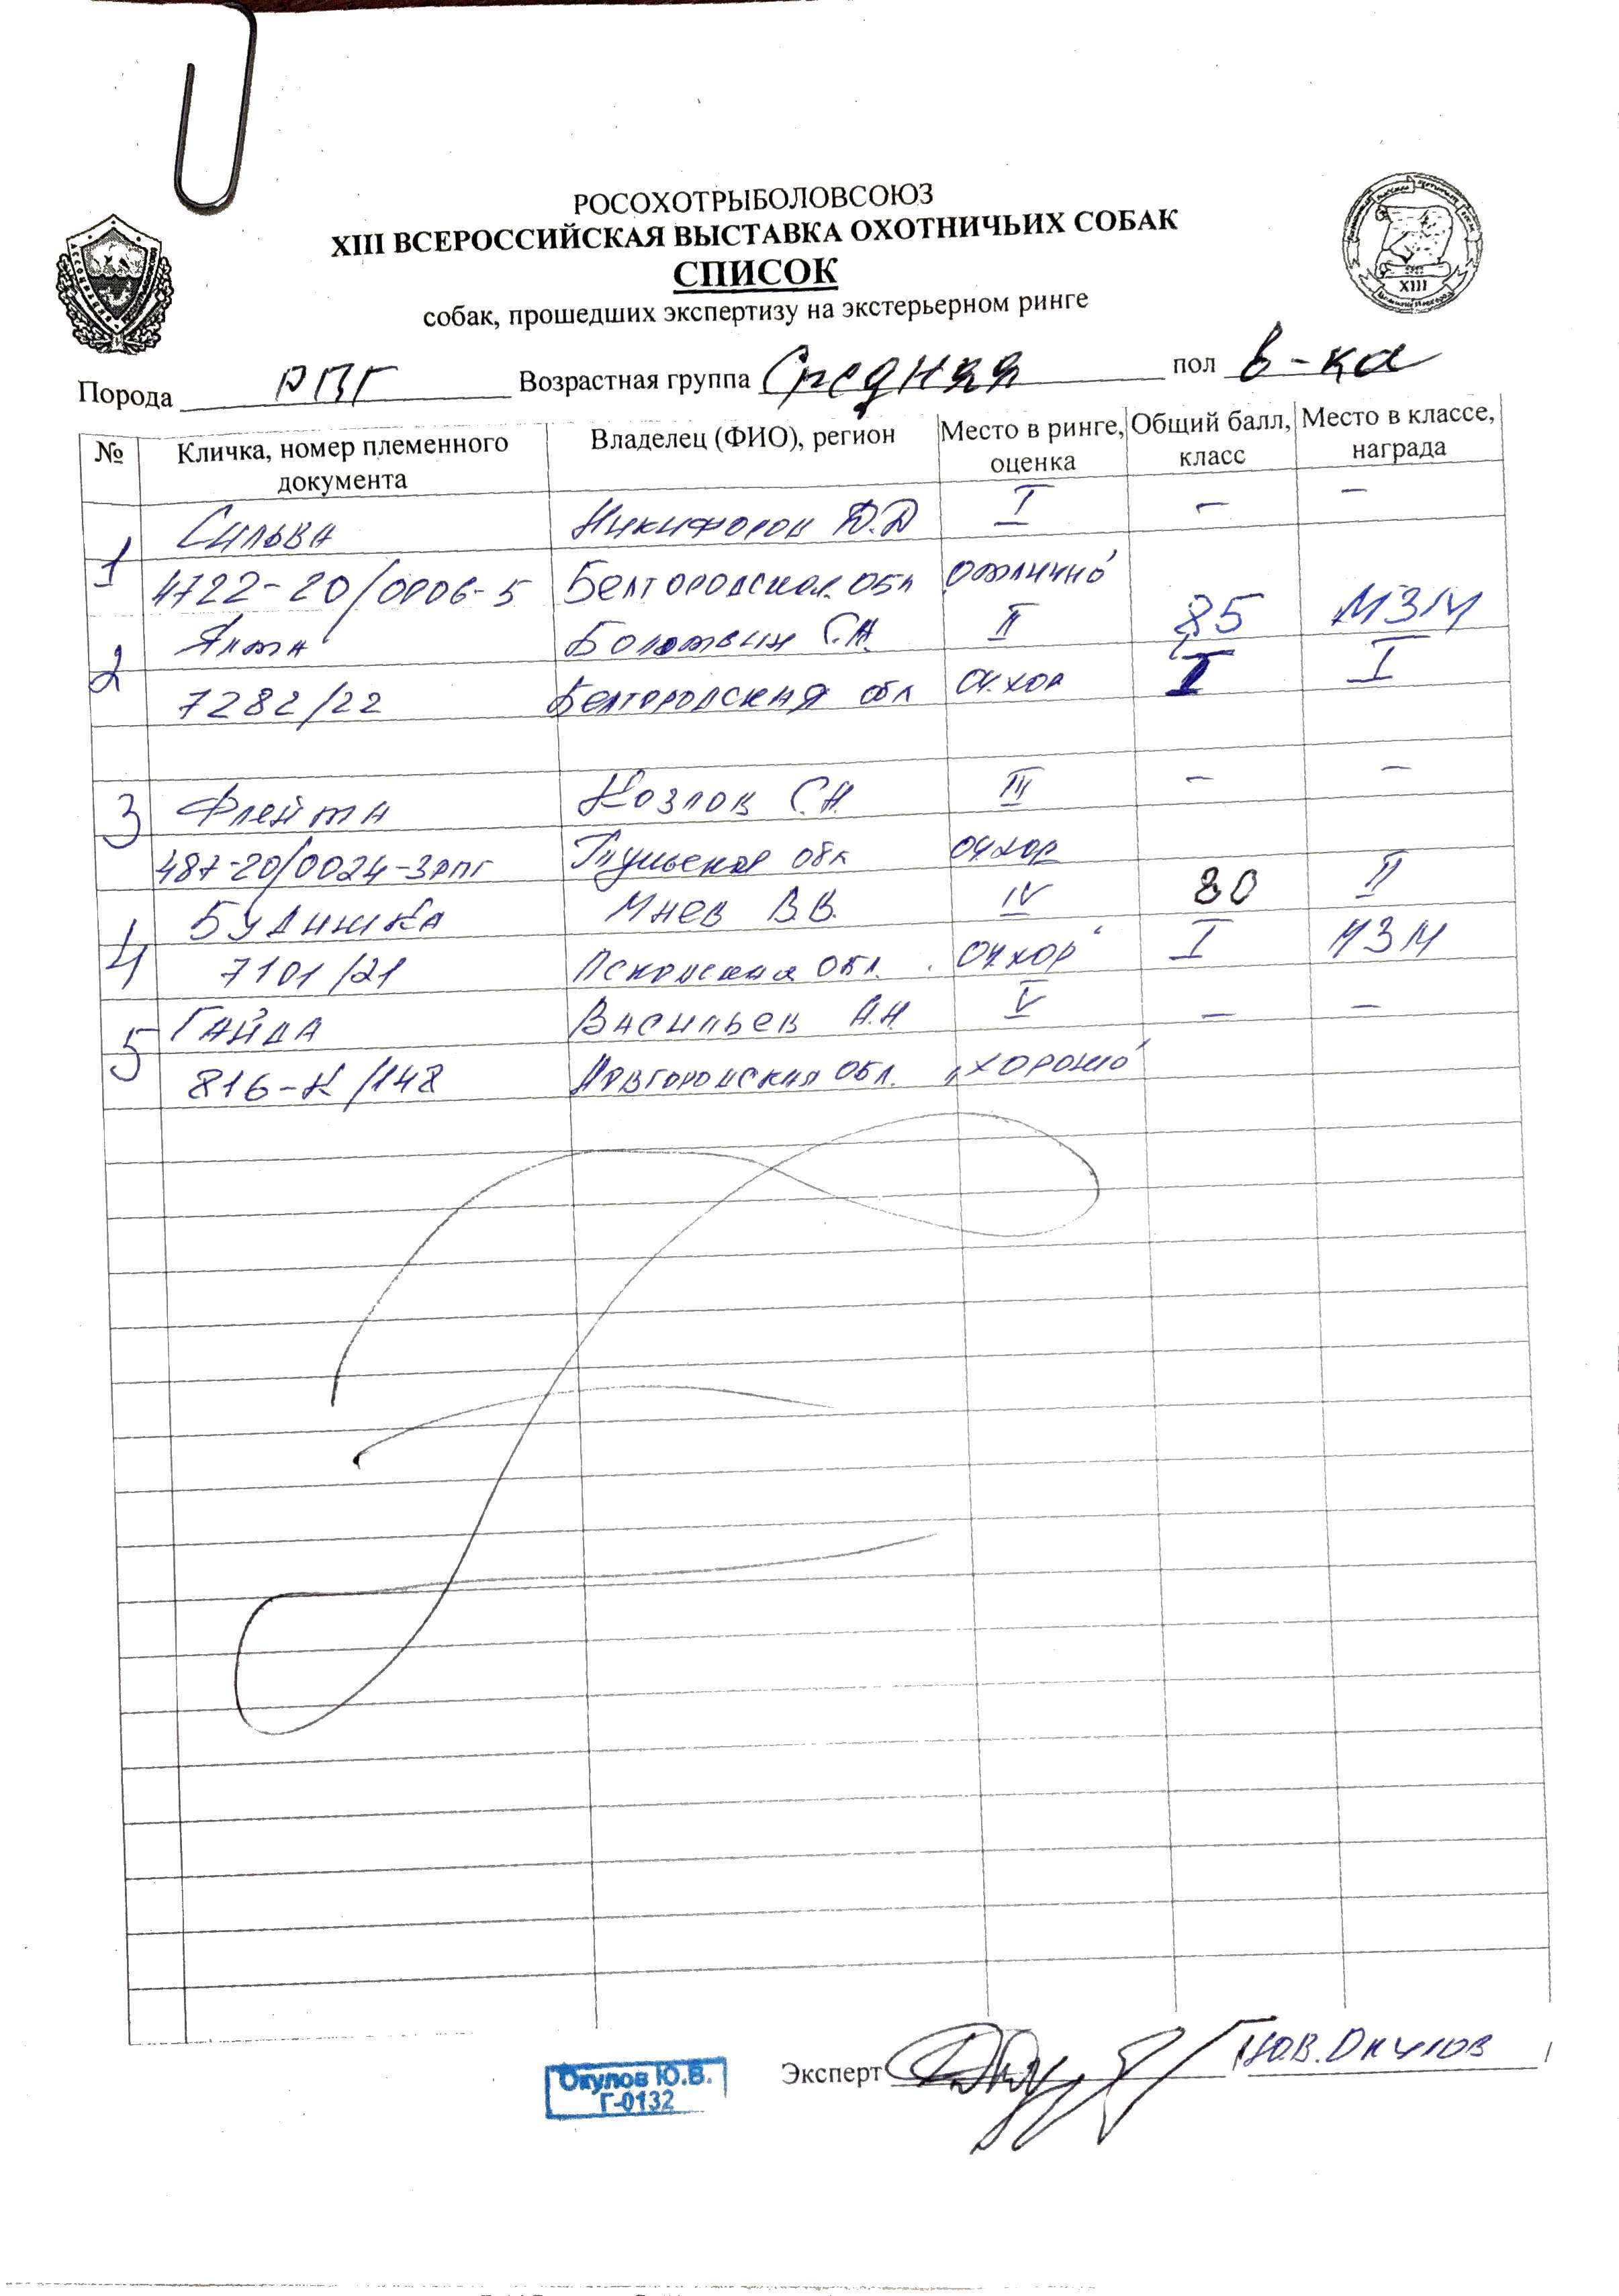 РОСОХОТРЫБОЛОВСОЮЗ
XIII ВСЕРОССИЙСКАЯ ВЫСТАВКА ОХОТНИЧЬИХ СОБАК
СПИСОК
собак, прошедших экспертизу на экстерьерном ринге
XIII
Порода РПГ Возрастная группа Средняя пол в-ка
№ Кличка, номер племенного документа Владелец (ФИО), регион Место в ринге, оценка Общий балл, класс Место в классе, награда
1 Сильва Никифоров Д.Д I - -
4722-20/0006-5 Белгородская обл отлично
2 Ялта Болотвин С.Н. II 85 МЗМ
7282/22 Белгородская обл оч.хор I I
3 Флейта Козлов С.Н. III - -
487-20/0024-3рпг Тульская обл оч хор
4 Булишка Мнев В.В. IV 80 II
7101/21 Псковская обл. оч хор I МЗМ
5 Гайда Васильев А.Н V - -
816-Н/148 Новгородская обл. „хорошо"
Окулов Ю.В.
Г-0132
Эксперт / Ю.В. Окулов /